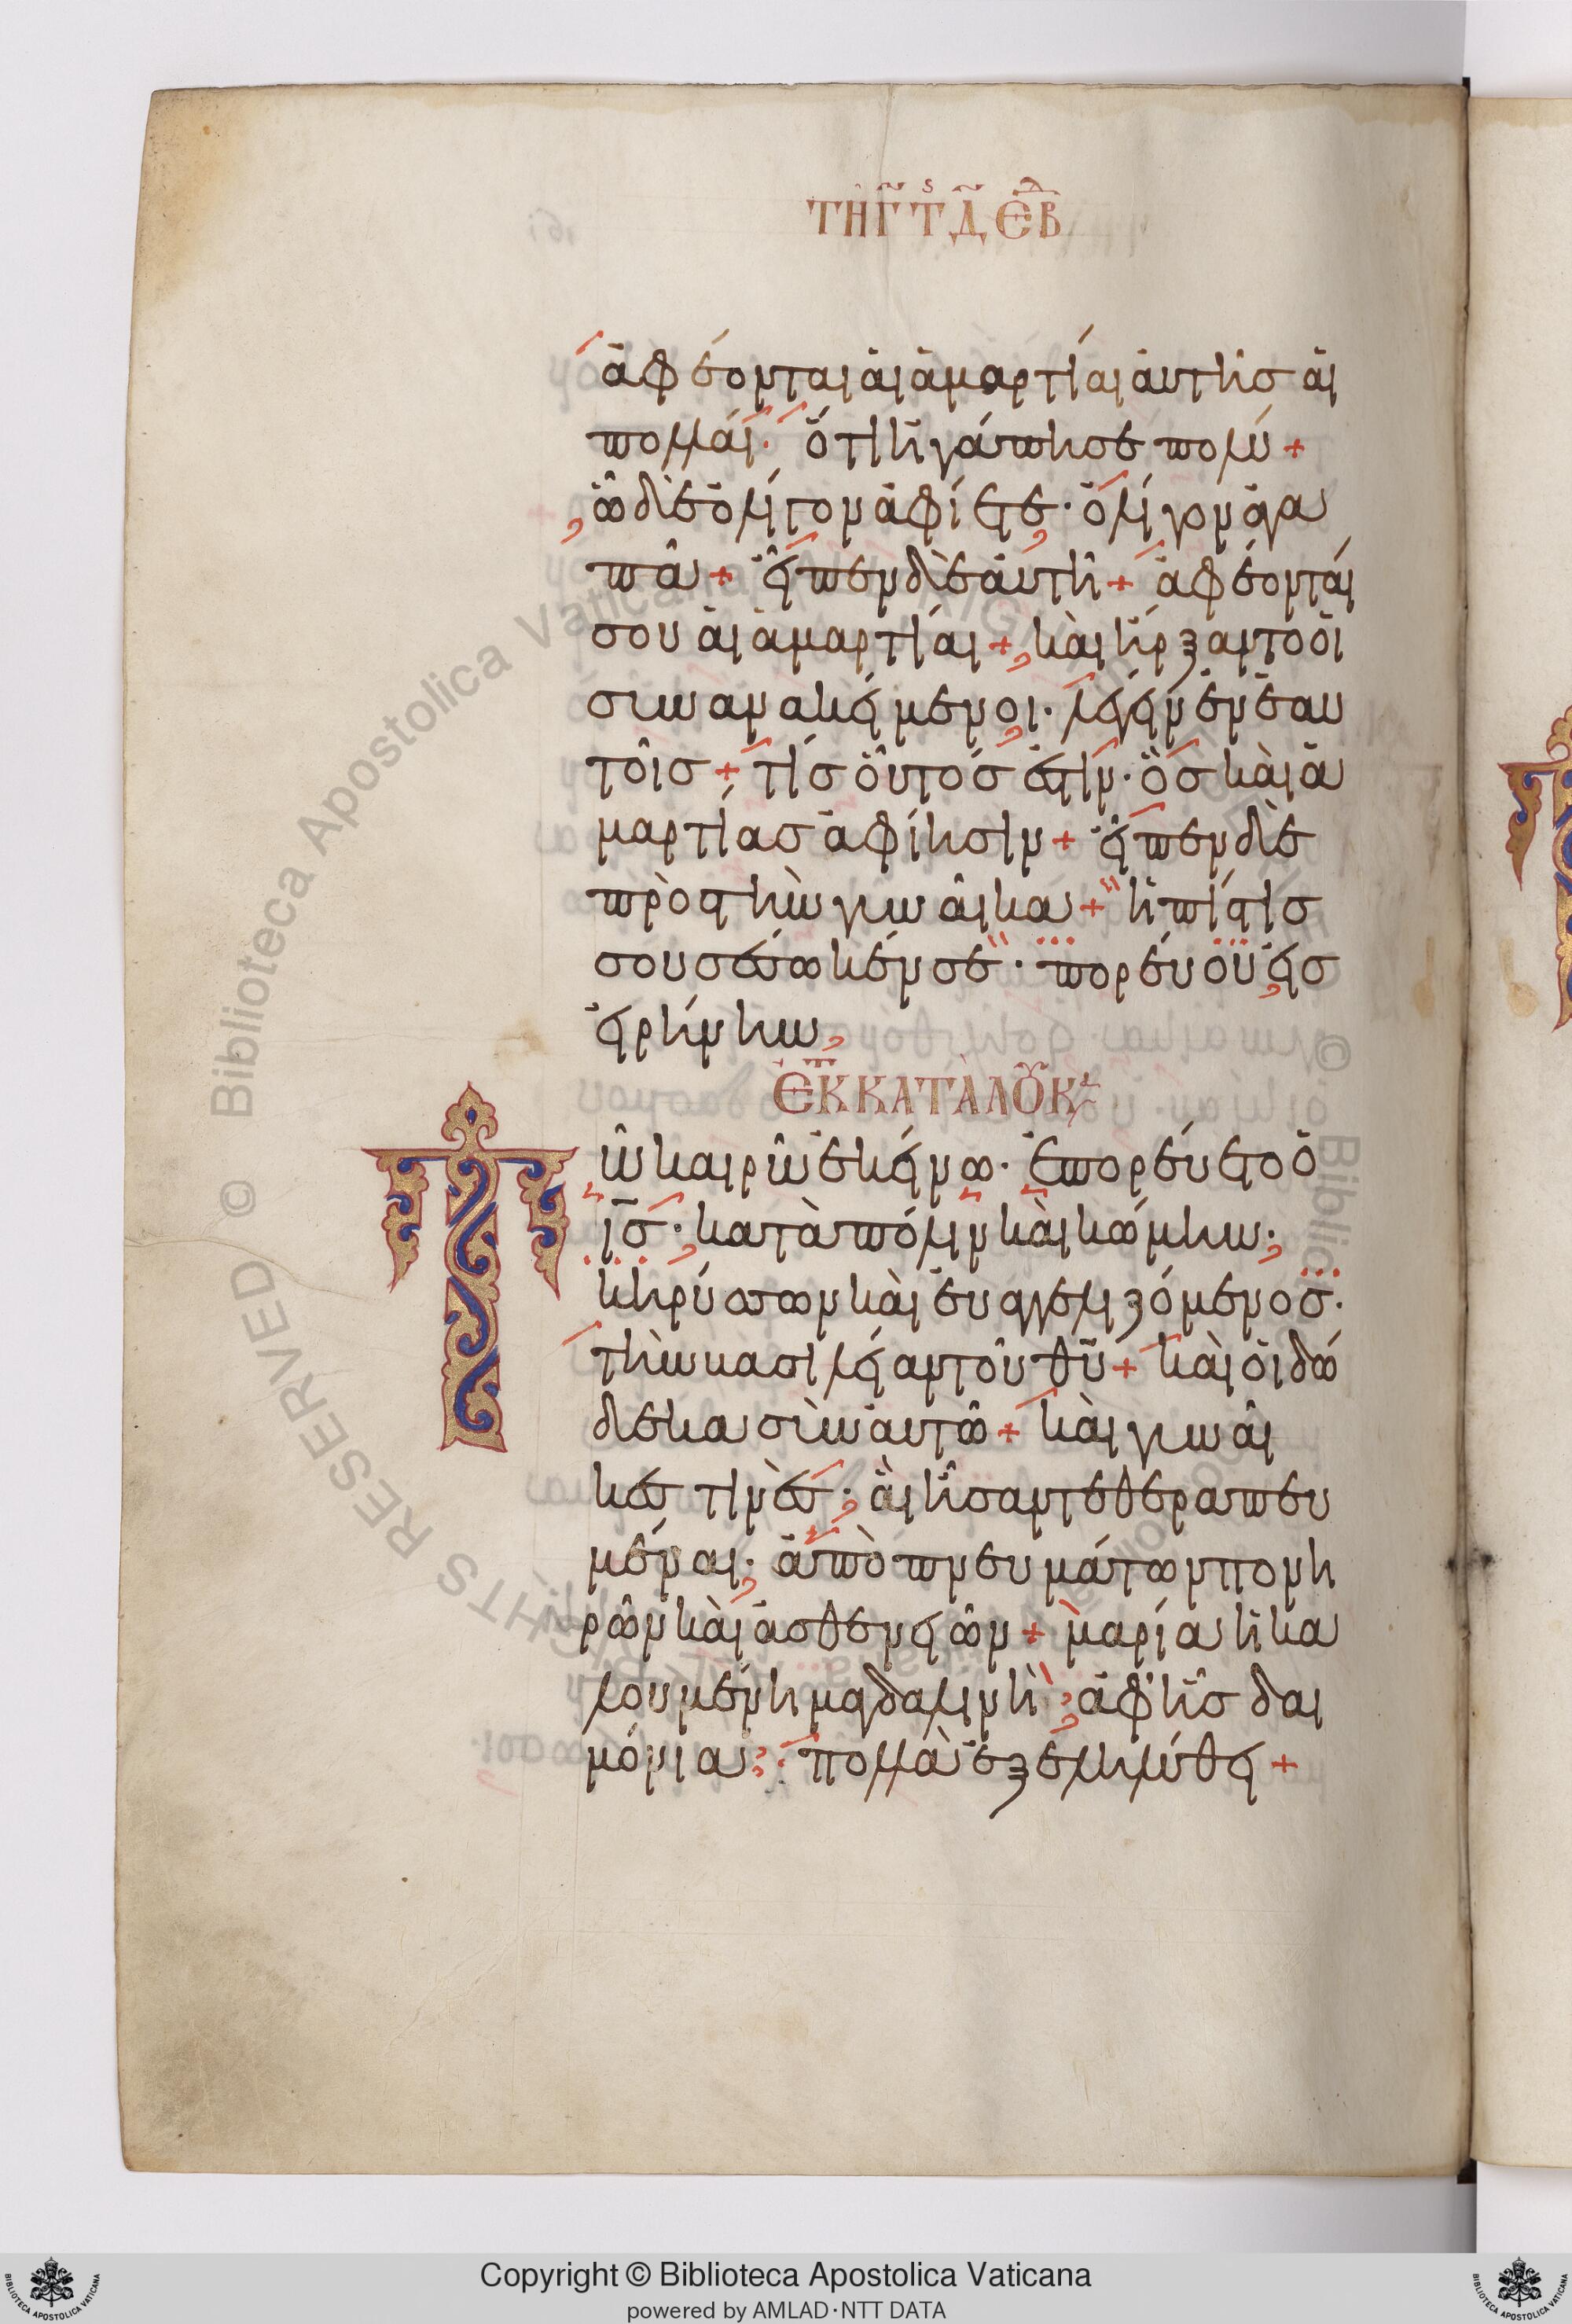 ΤΗ Γ ΤΗϚ Δ ΕΒΔ
ἀφέονται αἱ ἁμαρτίαι αὐτῆσ αἱ
πολλαί· ὅτι ἠγάπησε πολύ +
ᾧ δὲ ὀλίγον ἀφίεται· ὀλίγον ἀγα
πᾶ + εἶπεν δὲ αὐτῆ + ἀφέονταί
σου αἱ ἁμαρτίαι + καὶ ἤρξαντο οἱ
συνανακείμενοι· λέγειν ἐν ἑαυ
τοῖσ + τίσ οὗτόσ ἐστιν· ὃσ καὶ ἁ
μαρτίασ ἀφίησιν + εἶπεν δὲ
πρὸσ τὴν γυναῖκα + ἡ πίστισ
σου σέσωκέν σε· πορεύου εἰσ
εἰρήνην
ἘΚ ΚΑΤᾺ ΛΟΥΚ
Τῶ καιρῶ ἐκείνω· ἐπορεύετο ὁ
ισ· κατὰ πόλιν καὶ κώμην·
κηρύσσων καὶ εὐαγγελιζόμενοσ·
τὴν βασιλείαν τοῦ θυ + καὶ οἱ δώ
δεκα σὺν αὐτῶ + καὶ γυναῖ
κεσ τινὲσ· αἳ ἦσαν τεθεραπευ
μέναι· ἀπὸ πνευμάτων πονη
ρῶν καὶ ἀσθενειῶν + μαρία ἡ κα
λουμένη μαγδαλινὴ· ἀφ' ἧσ δαι
μόνια πολλὰ ἐξεληλύθει +
Copyright © Biblioteca Apostolica Vaticana
powered by AMLAD·NTT DATA